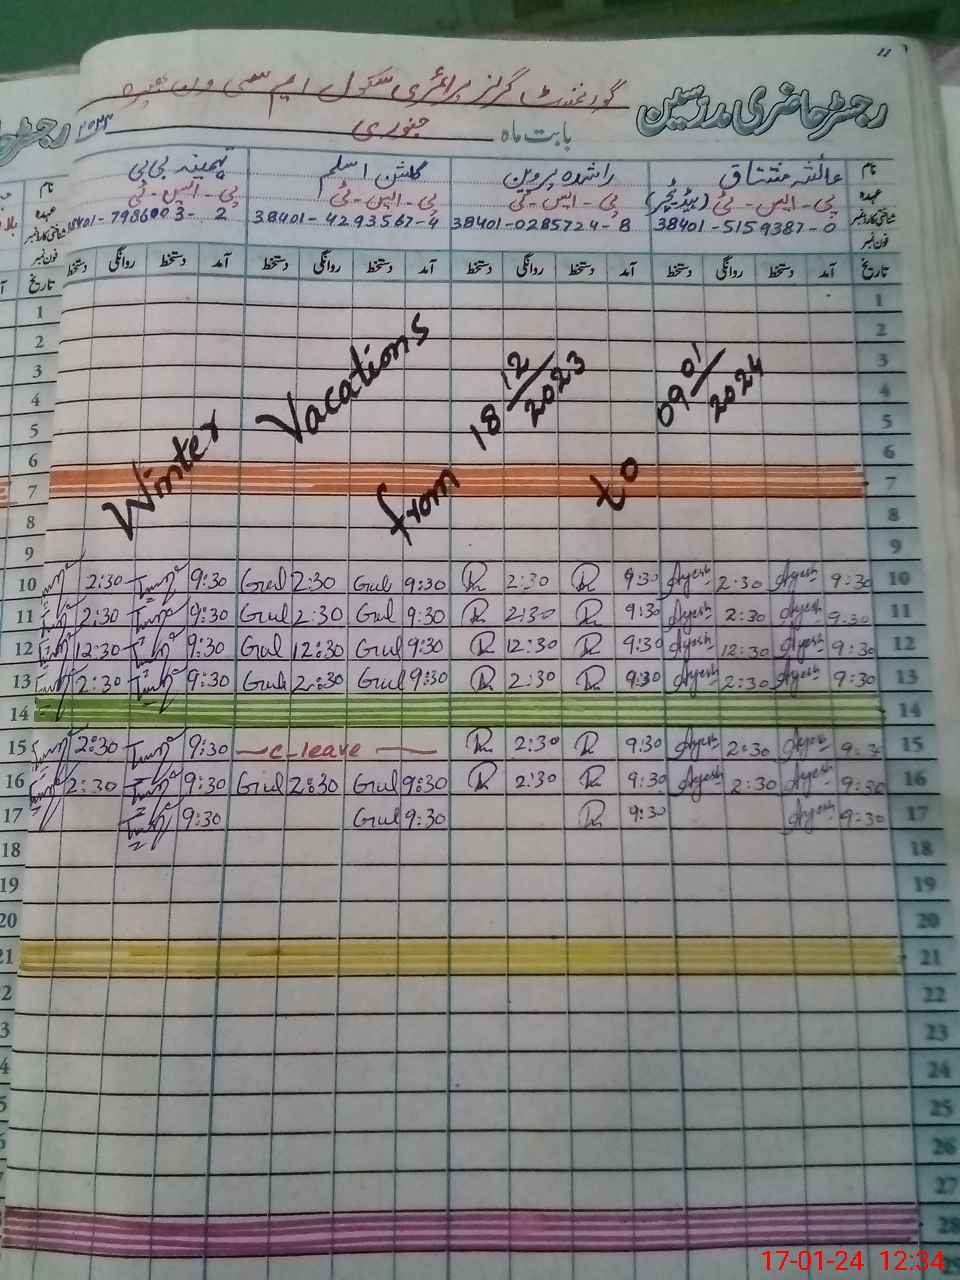 11
رجسٹر حاضری مدرسین
گورنمنٹ گرلز پرائمری سکول ایم سی ون
بابت ماہ جنوری
نام عائشہ مشتاق راشدہ پروین گلشن اسلم تہمینہ بی بی نام
عہدہ پی-ایس-ٹی (ہیڈ ٹیچر) پی-ایس-ٹی پی-ایس-ٹی پی-ایس-ٹی عہدہ
شناختی کارڈ نمبر 38401-5159387-0 38401-0285724-8 38401-4293567-4
فون نمبر فون نمبر
تاریخ آمد دستخط روانگی دستخط آمد دستخط روانگی دستخط آمد دستخط روانگی دستخط آمد دستخط روانگی دستخط تاریخ
1 1
2 2
3 3
4 4
5 5
6 6
7 7
8 8
9 9
Winter Vacations from 18 12/2023 to 09 01/2024
10 2:30 9:30 Gul 2:30 Gul 9:30 R 2:30 R 9:30 Ayesh 2:30 Ayesh 9:30 10
11 2:30 9:30 Gul 2:30 Gul 9:30 R 2:30 R 9:30 Ayesh 2:30 Ayesh 9:30 11
12 12:30 9:30 Gul 12:30 Gul 9:30 R 12:30 R 9:30 Ayesh 12:30 Ayesh 9:30 12
13 2:30 9:30 Gul 2:30 Gul 9:30 R 2:30 R 9:30 Ayesh 2:30 Ayesh 9:30 13
14 14
15 2:30 9:30 — C-leave — R 2:30 R 9:30 Ayesh 2:30 Ayesh 9:30 15
16 2:30 9:30 Gul 2:30 Gul 9:30 R 2:30 R 9:30 Ayesh 2:30 Ayesh 9:30 16
17 9:30 Gul 9:30 R 9:30 Ayesh 9:30 17
18 18
19 19
20 20
21 21
22
23
24
25
26
27
28
17-01-24 12:34